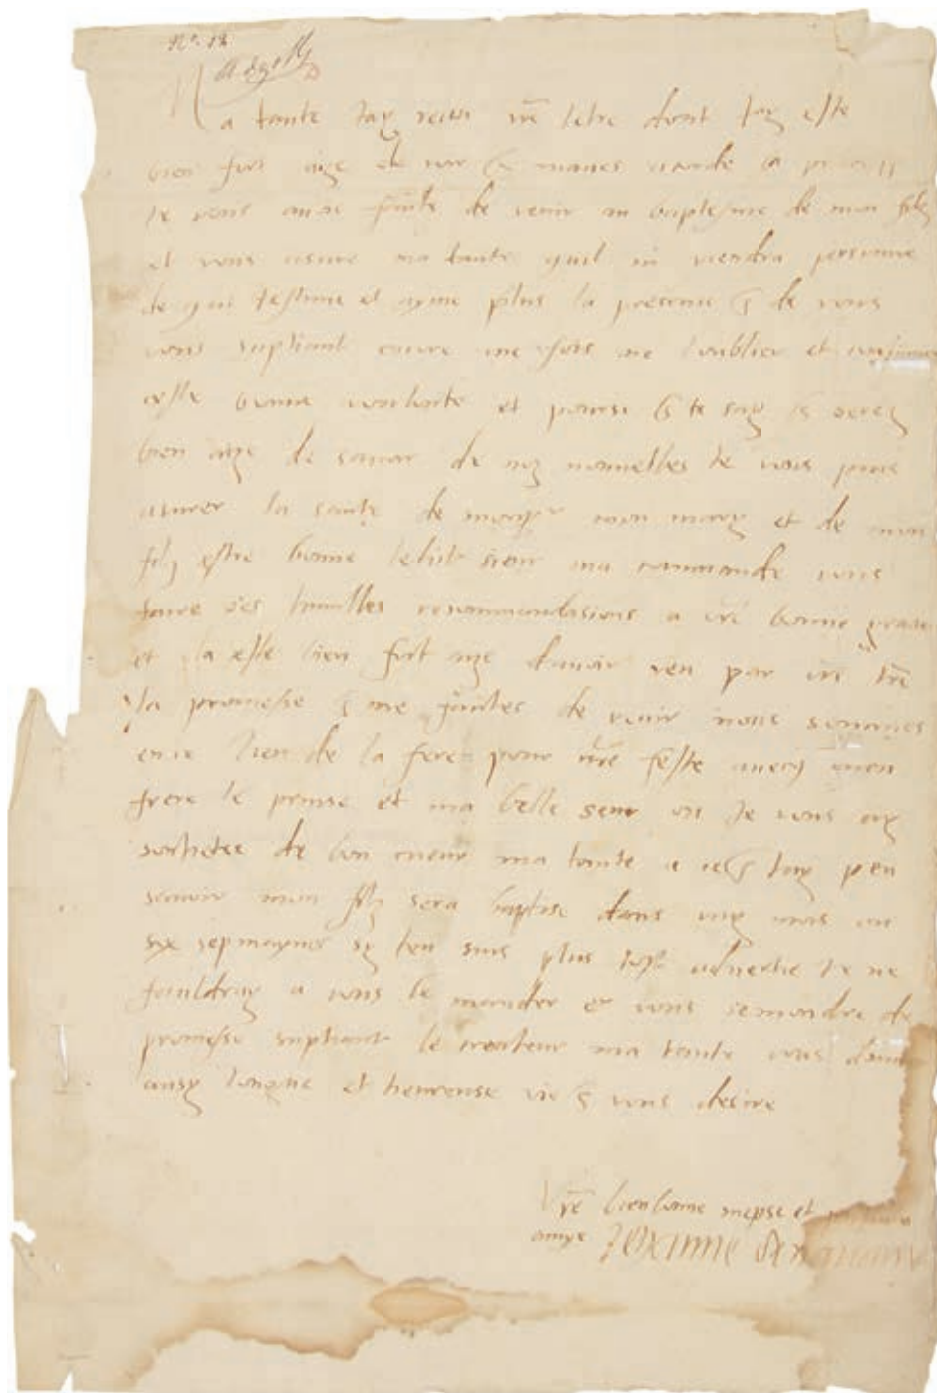 No. 18
Ma tante jay receu vre letre dont jay este
bien fort aize et voir
je vous avois faite de venir au baptesme de mon filz
et vous asure ma tante quil ni viendra personne
de qui jestime et ayme plus la presence q de vous
vous supliant encore une fois ne loublier et
ceste bonne voulonte et pource q je say q serez
bien aize de savoir de noz nouvelles je vous puis
asurer la sante de monsr mon mary et de mon
filz estre bonne ledit sieur ma commande vous
faire ses humbles recommandasions a vre bonne grace
et la este bien fort aize davoir veu par vre lre
la promesse q me faites de venir nous sommes
en ce lieu de la fere pour vre feste avecq mon
frere le prinse et ma belle seur ou je vous ay
souhetee de bon cueur ma tante a ce q jay peu
scavoir mon filz sera baptise dans ung mois ou
six sepmaynes sy jen suis plus tost advertie je ne
fauldray a vous le mander et vous semondre de
promesse supliant le createur ma tante vous donner
ausy longue et heureuse vie q vous desire
Vre bien bonne niepse et
amye Jehanne de navarre